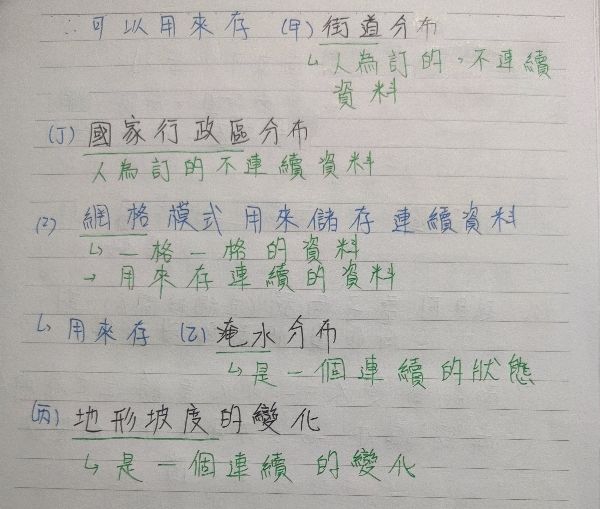 ∴可以用來存 (甲) 街道分布
↳人為訂的、不連續
資料
(丁) 國家行政區分布
人為訂的不連續資料
(2) 網格模式用來儲存連續資料
↳一格一格的資料
→用來存連續的資料
↳用來存 (乙) 淹水分布
↳是一個連續的狀態
(丙) 地形坡度的變化
↳是一個連續的變化